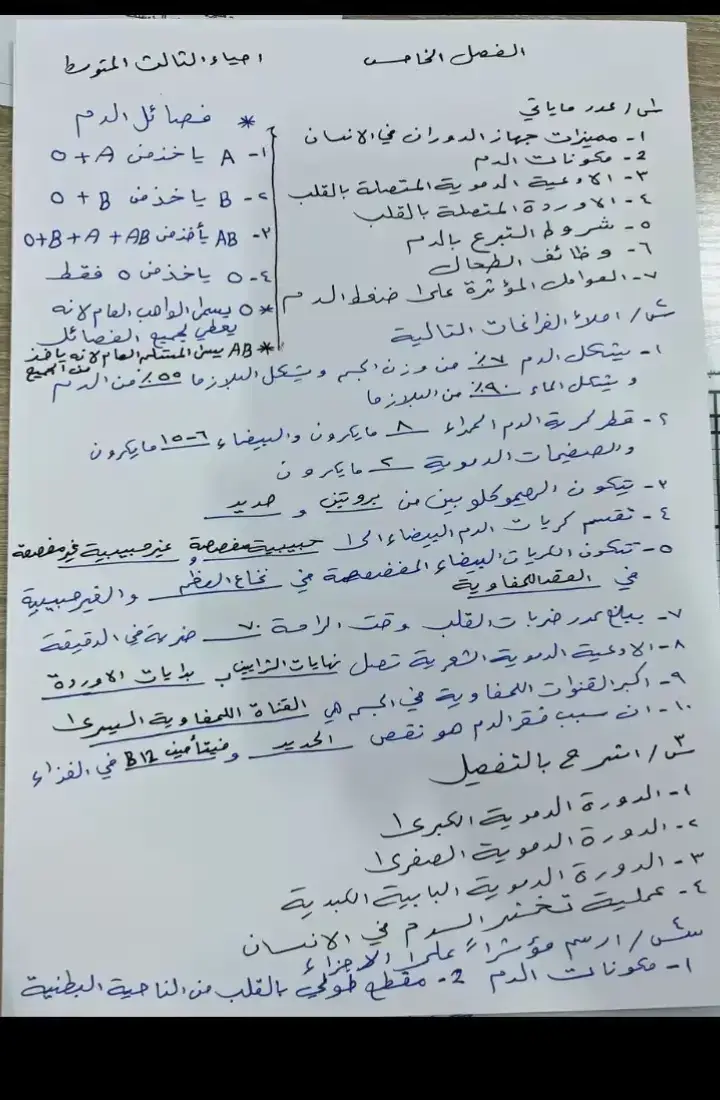 الفصل الخامس
احياء الثالث المتوسط
س١/ عدد ماياتي
١- مميزات جهاز الدوران في الانسان
2- مكونات الدم
٣- الاوعية الدموية المتصلة بالقلب
٤- الاوردة المتصلة بالقلب
٥- شروط التبرع بالدم
٦- وظائف الطحال
٧- العوامل المؤثرة على ضغط الدم
* فصائل الدم
١- A ياخذ من A + O
٢- B ياخذ من B + O
٣- AB يأخذ من AB + A + B + O
٤- O ياخذ من O فقط
* O يسمى الواهب العام لانه
يعطي لجميع الفصائل
* AB يسمى المستلم العام لانه ياخذ
من الجميع
س٢/ املأ الفراغات التالية
١- يشكل الدم ٧٪ من وزن الجسم ويشكل البلازما ٥٥٪ من الدم
ويشكل الماء ٩٠٪ من البلازما
٢- قطر كرية الدم الحمراء ٨ مايكرون والبيضاء ٦-١٥ مايكرون
والصفيحات الدموية ٢ مايكرون
٣- يتكون الهيموكلوبين من بروتين و حديد
٤- تقسم كريات الدم البيضاء الى حبيبية مفصصة و غير حبيبية غير مفصصة
٥- تتكون الكريات البيضاء المفصصة في نخاع العظم والغير حبيبية
في العقد اللمفاوية
٧- يبلغ عدد ضربات القلب وقت الراحة ٧٠ ضربة في الدقيقة
٨- الاوعية الدموية الشعرية تصل نهايات الشرايين ب بدايات الاوردة
٩- اكبر القنوات اللمفاوية في الجسم هي القناة اللمفاوية اليسرى
١٠- ان سبب فقر الدم هو نقص الحديد و فيتأمين B12 في الغذاء
س٣/ اشرح بالتفصيل
١- الدورة الدموية الكبرى
٢- الدورة الدموية الصغرى
٣- الدورة الدموية البابية الكبدية
٤- عملية تخثر الدم في الانسان
س٤/ ارسم مؤشراً على الاجزاء
١- مكونات الدم 2- مقطع طولي بالقلب من الناحية البطنية